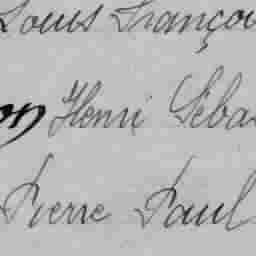 Louis Françoi
on Henri Séba
Pierre Paul